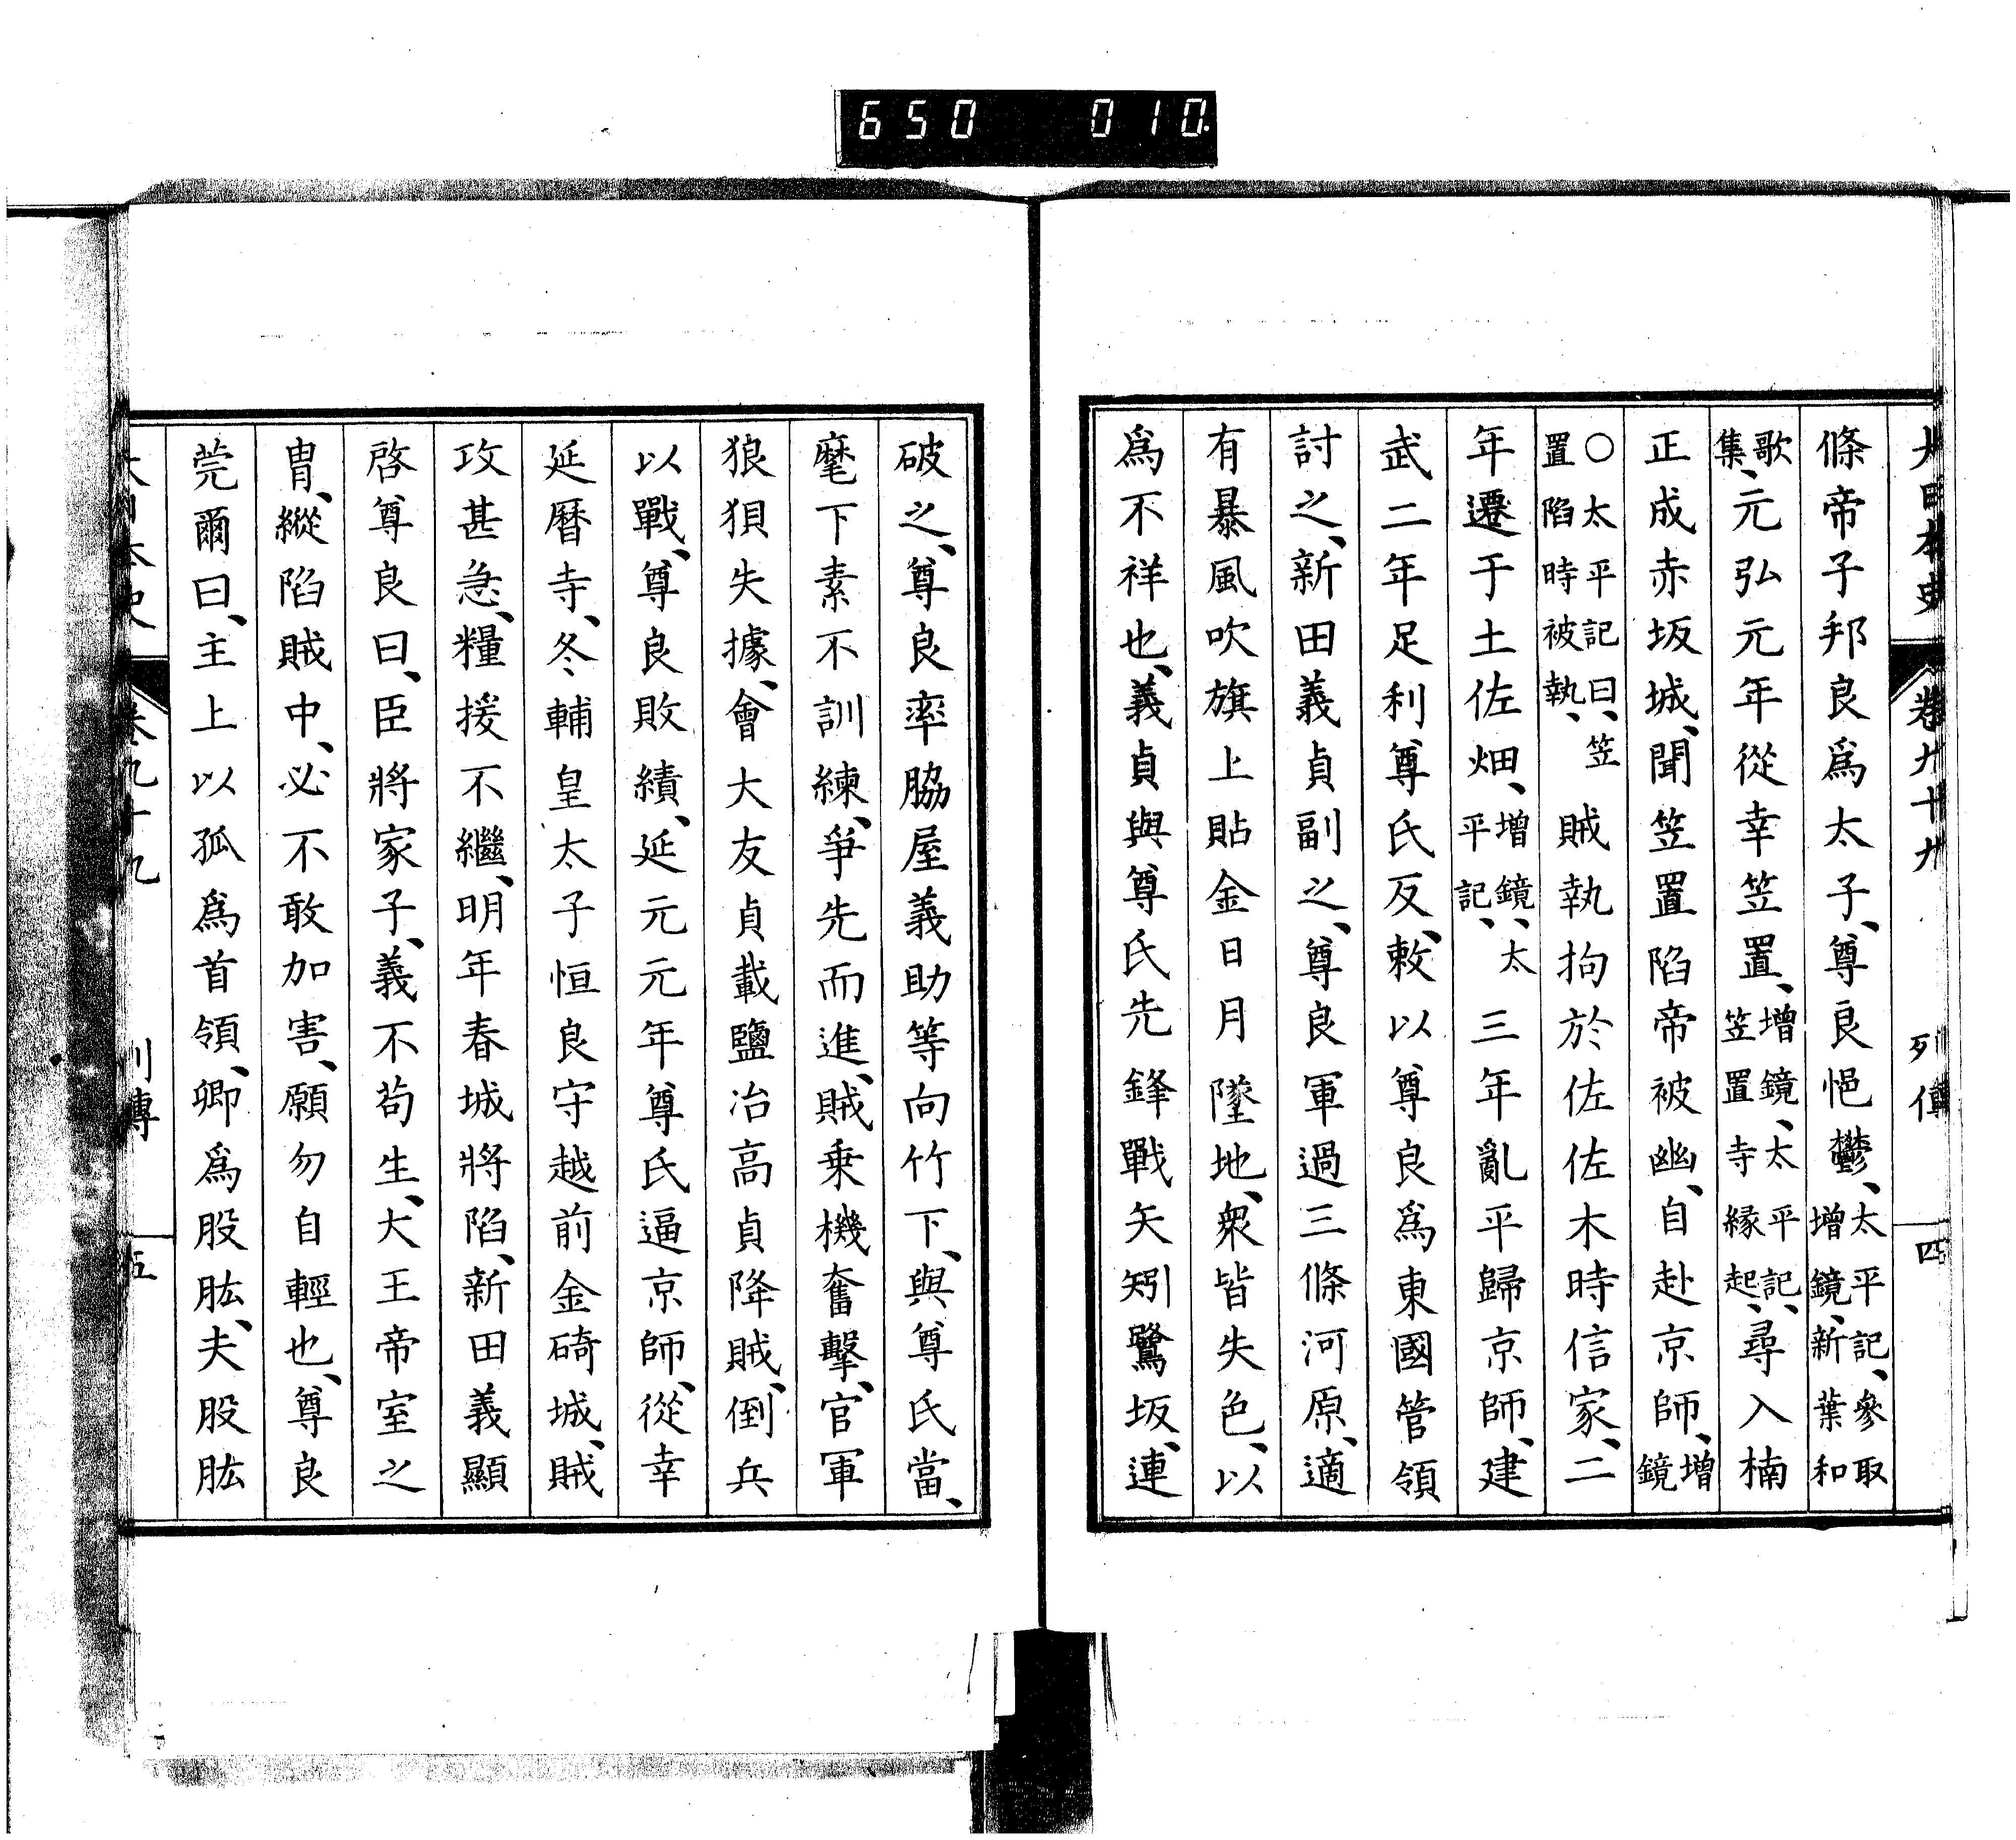 650 010
大日本史 卷九十九 列傳 四
條帝子邦良爲太子、尊良悒鬱、太平記、參取增鏡、新葉和
歌集、元弘元年從幸笠置、增鏡、太平記、笠置寺緣起、尋入楠
正成赤坂城、聞笠置陷帝被幽、自赴京師、增鏡
○太平記曰、笠置陷時被執、賊執拘於佐佐木時信家、二
年遷于土佐畑、增鏡、太平記、三年亂平歸京師、建
武二年足利尊氏反、敕以尊良爲東國管領
討之、新田義貞副之、尊良軍過三條河原、適
有暴風吹旗上貼金日月墜地、衆皆失色、以
爲不祥也、義貞與尊氏先鋒戰矢矧鷺坂、連
破之、尊良率脇屋義助等向竹下、與尊氏當、
麾下素不訓練、爭先而進、賊乗機奮擊、官軍
狼狽失據、會大友貞載鹽冶高貞降賊、倒兵
以戰、尊良敗績、延元元年尊氏逼京師、從幸
延曆寺、冬輔皇太子恒良守越前金碕城、賊
攻甚急、糧援不繼、明年春城將陷、新田義顯
啓尊良曰、臣將家子、義不苟生、大王帝室之
冑、縱陷賊中、必不敢加害、願勿自輕也、尊良
莞爾曰、主上以孤爲首領、卿爲股肱、夫股肱
大日本史 卷九十九 列傳 五